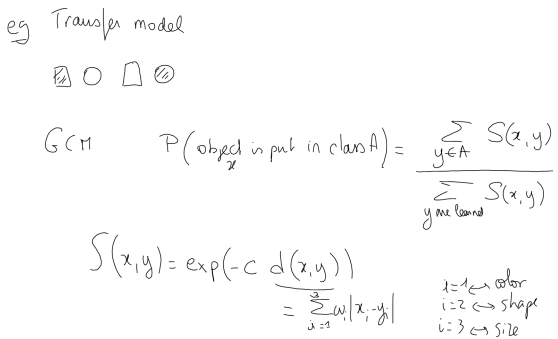 eg Transfer model
GCM P(object x is put in class A) = ∑ y∈A S(x,y) / ∑ y are learned S(x,y)
S(x,y) = exp(-c d(x,y))
= ∑ i=1 3 ωi|xi-yi|
i=1 ↔ color
i=2 ↔ shape
i=3 ↔ size